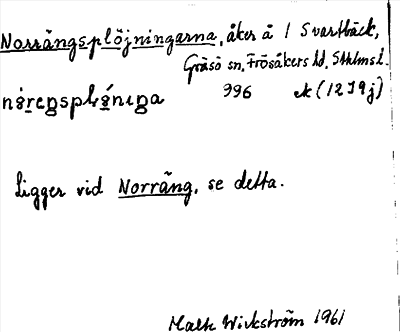 Norrängsplöjningarna, åker å 1 Svartbäck,
Gräsö sn, Frösåkers hd, Sthlms l.
396 ek (12I9j)
Ligger vid Norräng, se detta.
Malte Wickström 1961